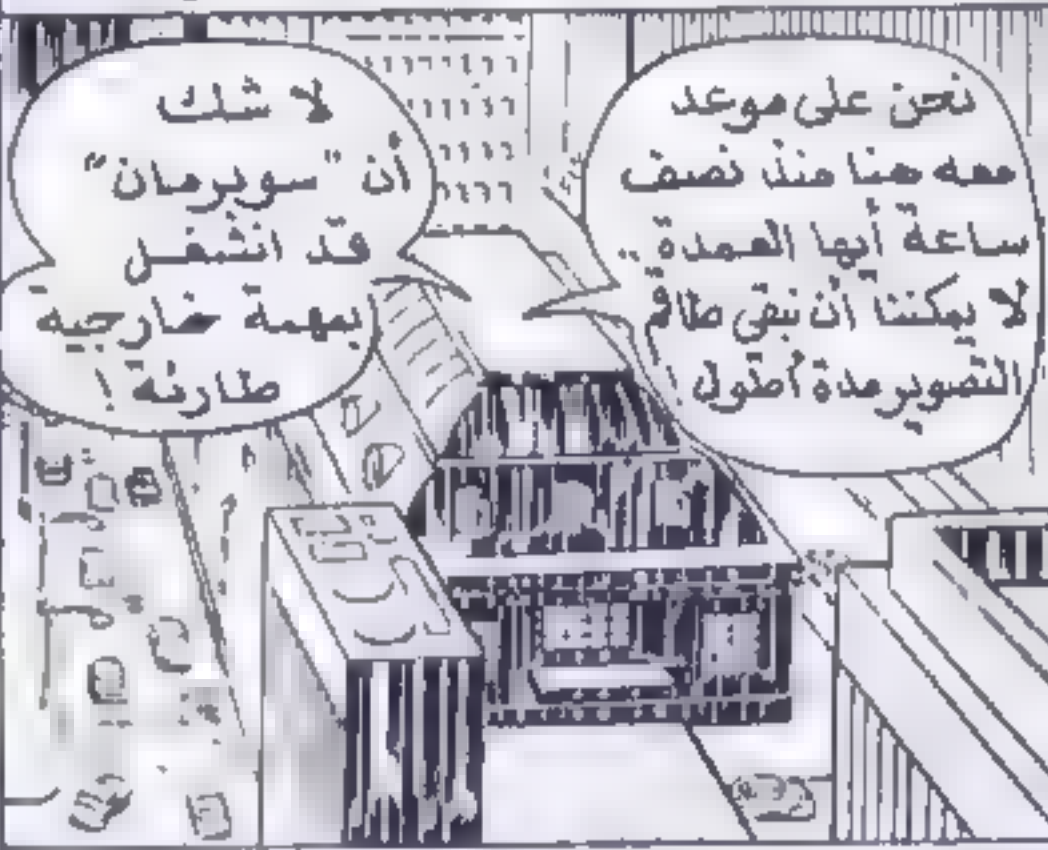 نحن على موعد
معه هنا منذ نصف
ساعة أيها العمدة ..
لا يمكننا أن نبقى طاقم
التصوير مدة أطول
لا شك
أن "سوبرمان"
قد انشغل
بمهمة خارجية
طارئة !